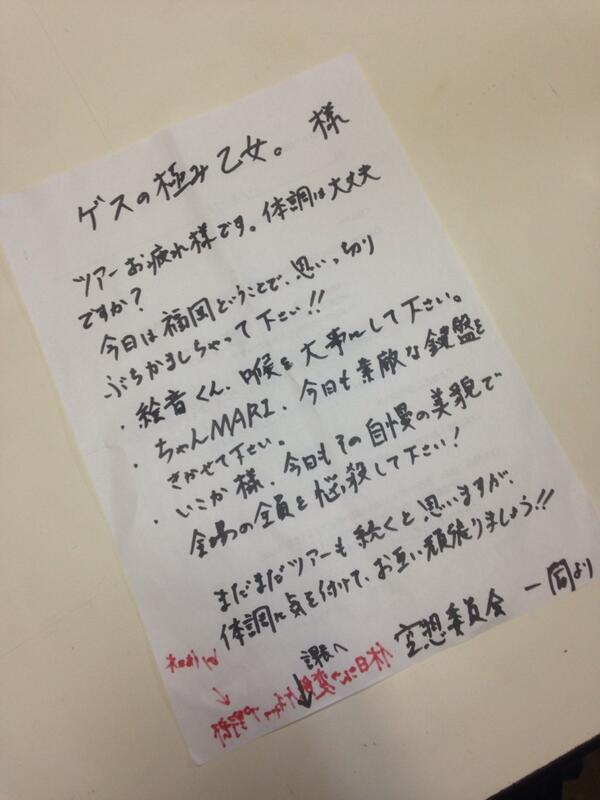 ゲスの極み乙女。 様
ツアーお疲れ様です。体調は大丈夫
ですか?
今日は福岡ということで、思いっ切り
ぶちかましちゃって下さい!!
・絵音くん、喉を大事にして下さい。
・ちゃんMARI、今日も素敵な鍵盤を
きかせて下さい。
・いこか様、今日もその自慢の美貌で
会場の全員を悩殺して下さい!
まだまだツアーも続くと思いますが、
体調に気を付けて、お互い頑張りましょう!!
空想委員会 一同より
課長へ
↓